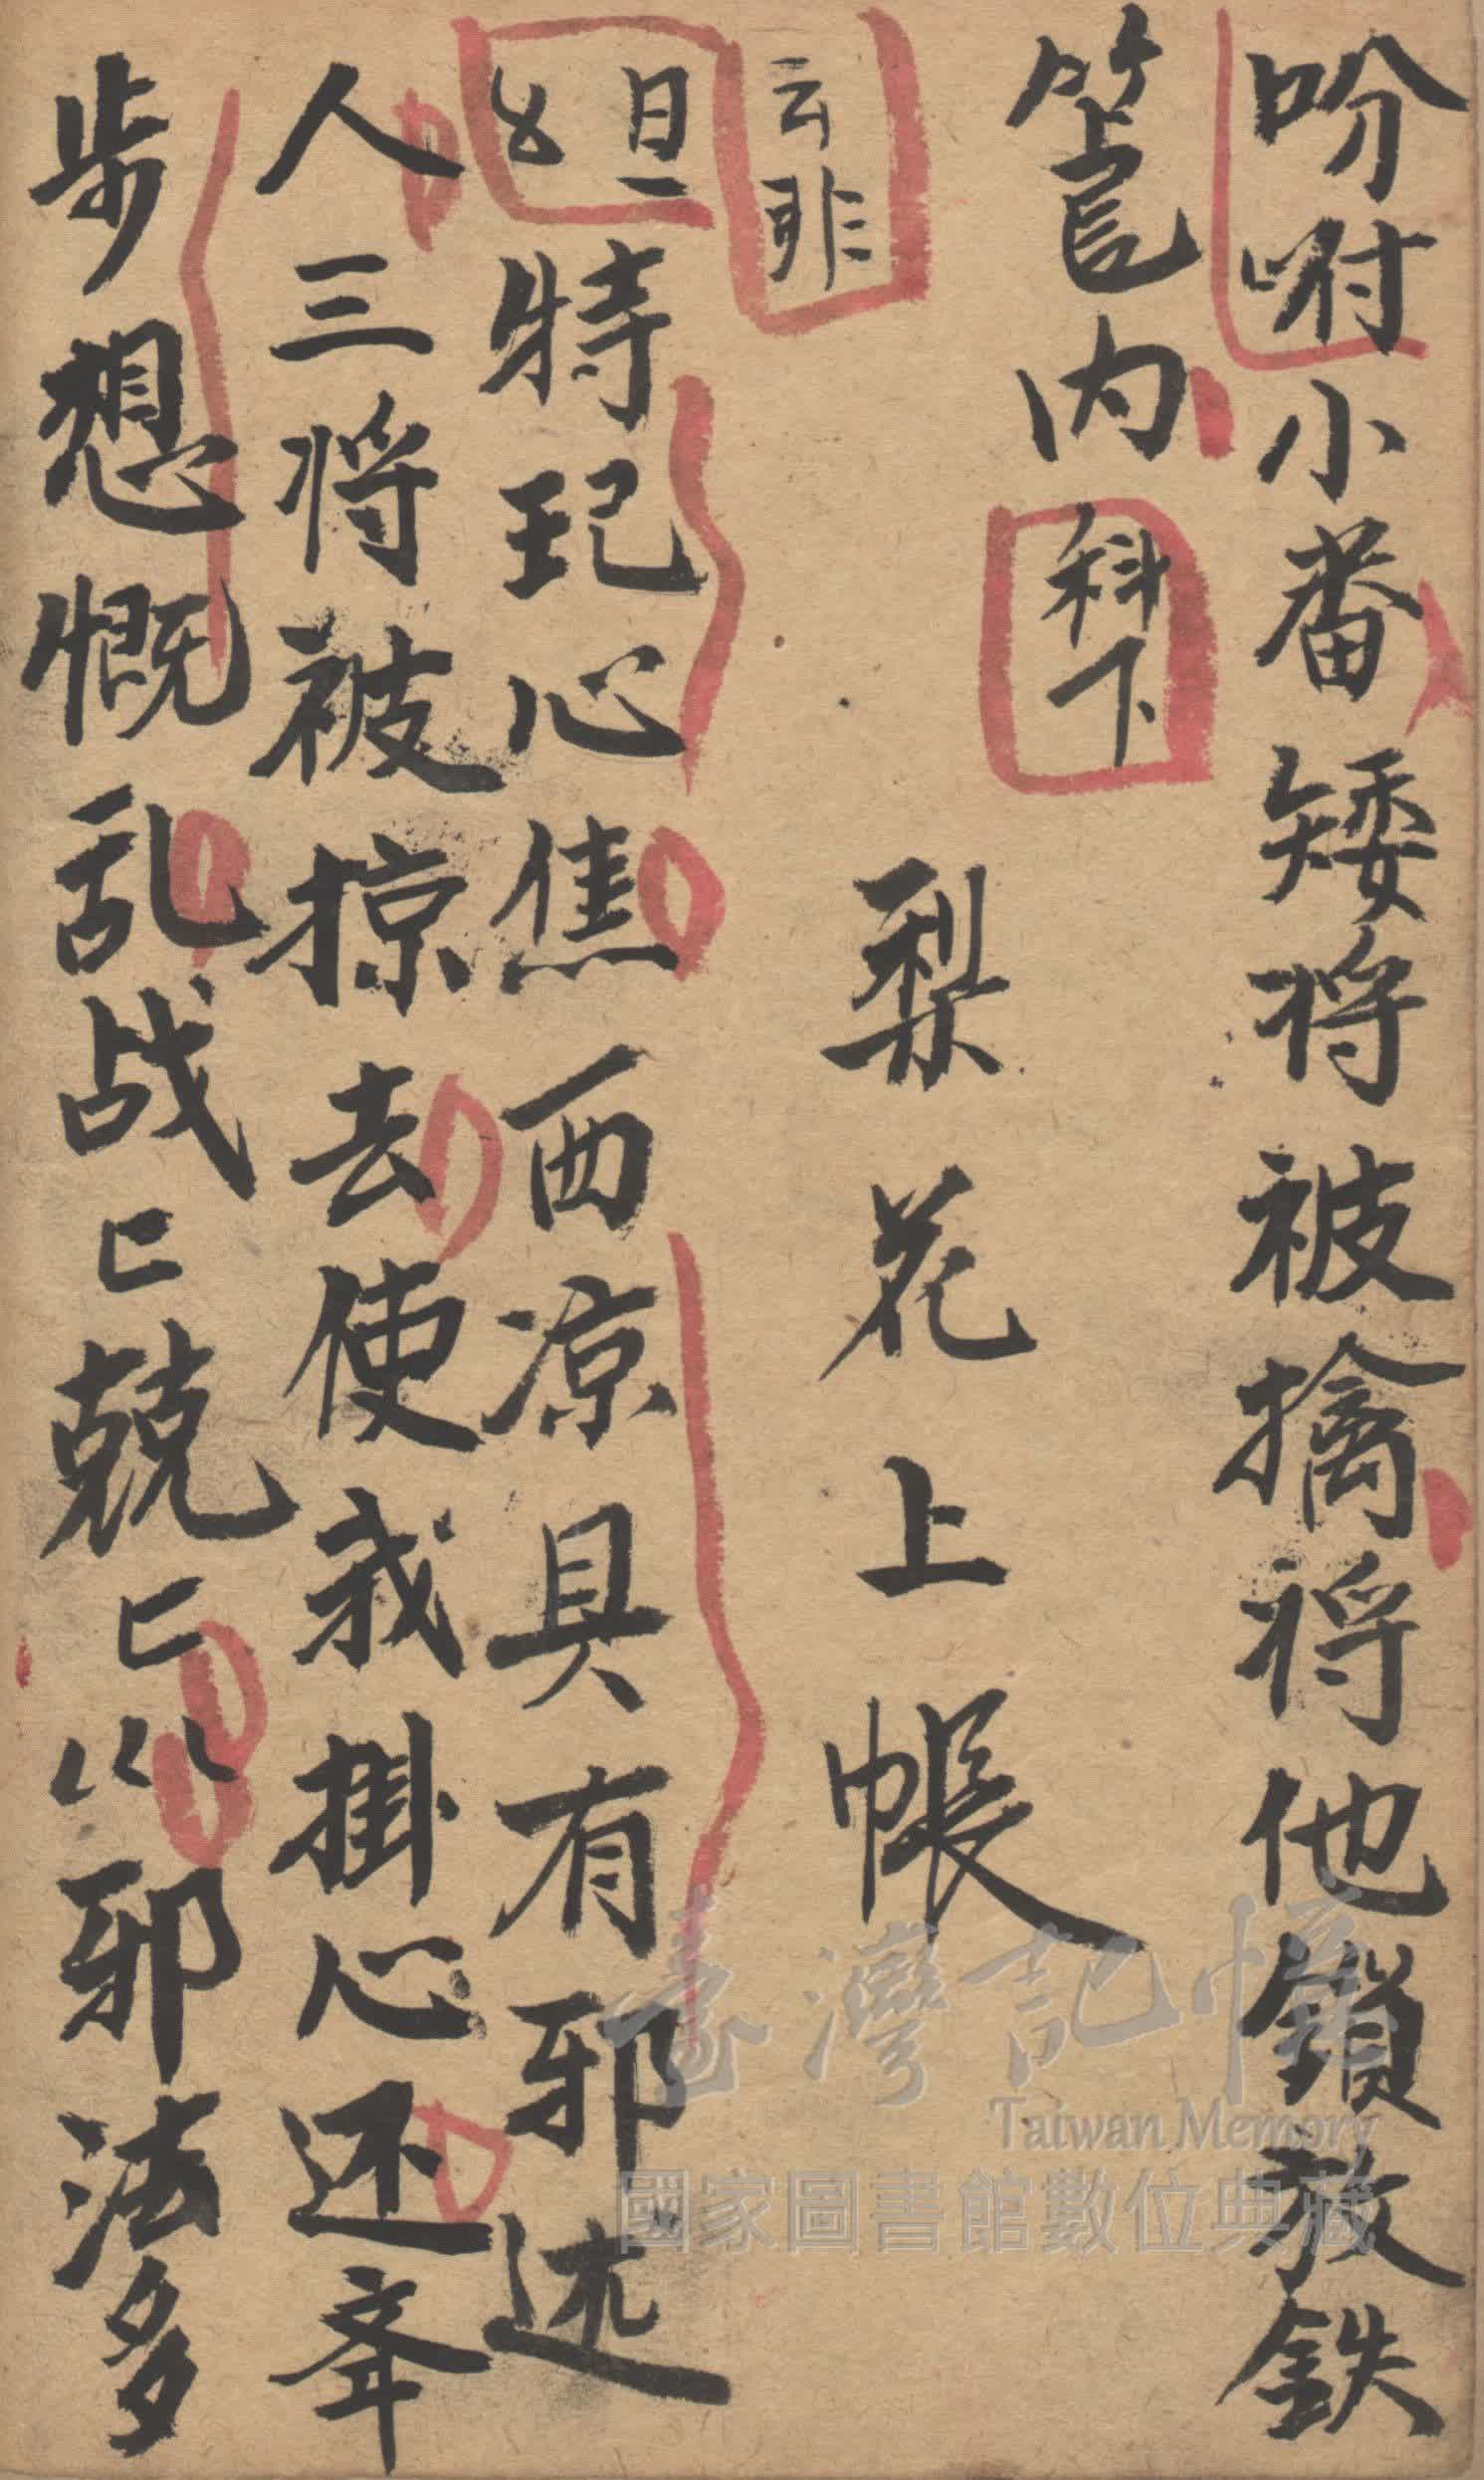 吩咐小番矮将被擒将他鎖放鉄
篭内 科下
梨花上帳
云 非
旦 特 心焦西凉具有邪述
人三将被掠去使我掛心还
步想慨乱战匕兢匕以邪法多
臺灣記憶
Taiwan Memory
國家圖書館數位典藏